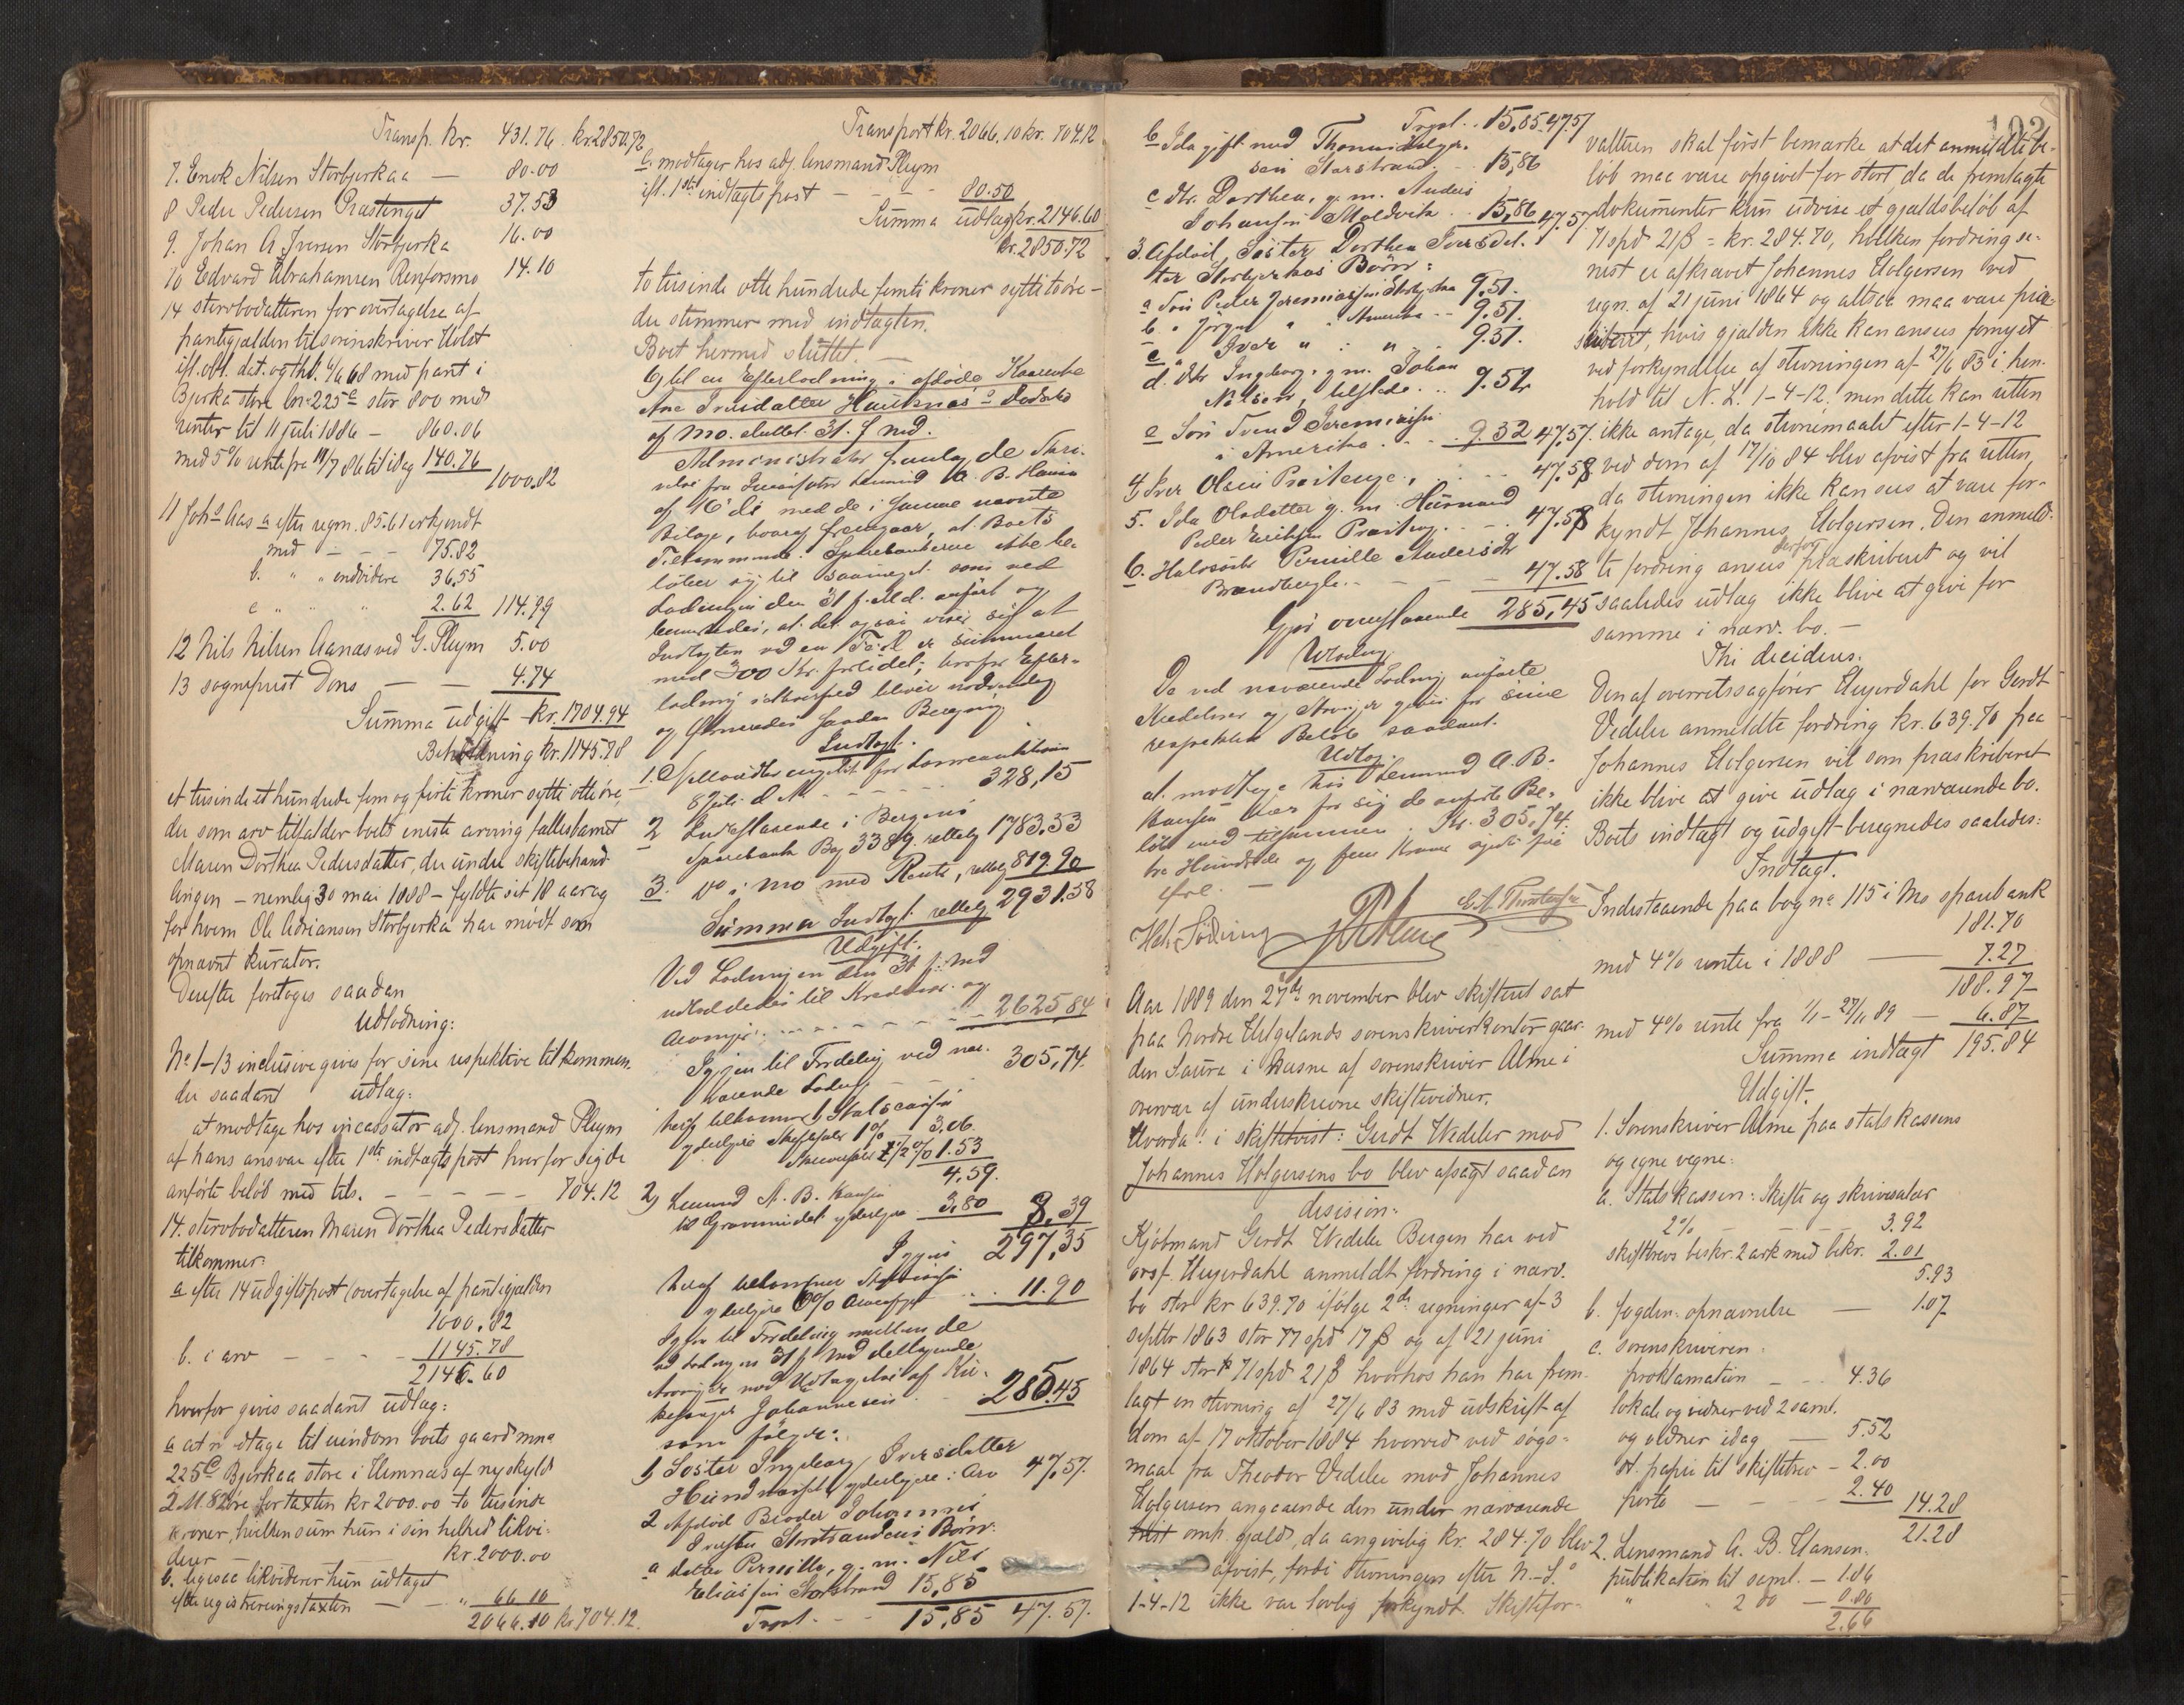 Transp. Kr. 431.76. kr. 2850.72
7. Enok Nilsen Storbjerkaa — 80.00
8 Peder Pedersen Præstenget 37.53
9. Johan A. Iversen Storbjerka 16.00
10 Edvard Abrahamsen Renforsmo 14.10
14 stervbodatteren for overtagelse af
pantegjælden til sorenskriver Holst
ifl. obl. dat. og thl. 4/6 68 med pant i
Bjerka store lnr 225 c stor 800 med
renter til 11 juli 1886 — 860.06
med 5% rente fra 11/7 86 til idag 140.76
1000.82
11 Johs Aas a efter regn. 85.61 erkjendt
med - - - 75.82
b. " " endvidere 36.55
c " " " 2.62 114.99
12 Nils Nilsen Aanæs ved G. Pleym 5.00
13 sogneprest Dons — — 4.74
Summa udgift kr. 1704.94
Beholdning kr. 1145.78
et tusinde et hundrede fem og firti kroner sytti otte øre,
der som arv tilfalder boets eneste arving fællesbarnet
Maren Dorthea Pedersdatter, der under skiftebehand-
lingen – nemlig 30 mai 1888 – fyldte sit 18 aar og
for hvem Ole Adriansen Storbjerka har mødt som
opnævnt kurator.
Derefter foretoges saadan
Udlodning:
No 1–13 inclusive gives for sine respektive tilkommen-
der saadant udlag:
at modtage hos incassator adj. lensmand Pleym
af hans ansvar efter 1ste indtægtspost hver for sig de
anførte beløb med tils. - - - - - 704.12
14. stervbodatteren Maren Dorthea Pedersdatter
tilkommer:
a efter 14 udgiftspost (overtagelse af pantegjælden
1000.82
b. i arv - - - - 1145.78
2146.60
hvorfor gives saadant udlag:
a at modtage til eiendom boets gaard mno
225 c Bjerkaa store i Hemnæs af ny skyld
2 M. 82 øre for taxten kr 2000.00 to tusinde
kroner, hvilken sum hun i sin helhed likvi-
derer — kr. 2000.00
b. ligesaa likviderer hun udtaget
efter registreringstaxten — - " 66.10
2066.10 kr. 704.12.
Transport kr. 2066.10 kr. 704.12
c. modtager hos adj. lensmand Pleym
ifl. 1ste indtægtspost - - - - 80.50
Summa udlæg kr. 2146.60
kr. 2850.72
to tusinde otte hundrede femti kroner sytti to øre –
der stemmer med indtægten.
Boet hermed sluttet. —
Og til en Efterlodning i afdøde Kaarenke
Ane Iversdatter Hauknes's Dødsbo
af Mo. sluttet 31. f. Md.
Administrator fremlagde Skri-
velse fra Lensmand A. B. Hansen
af 16 ds med de i samme nævnte
Bilage, hvoraf fremgaar, at Boets
Tilkommende i Sparebankerne ikke be-
løber sig til saameget som ved
Lodningen den 31 f. Md. anført og
bemærkedes, at det ogsaa viser sig at
Indtægten ved en Feil er summeret
med 300 Kr. for lidet; hvorfor Efter-
lodning i saa henseende bliver nødvendig
og foretages saadan Beregning.
Indtægt.
328,15
2 Indestaaende i Bergens
Sparebank Bog 3389. rettelig 1783.53
3. Do i Mo med Rente, rettelig 819.90
Summa Indtægt rettelig 2931.58
Udgift.
Ved Lodningen den 31 f. Md
udlodedes til Kreditorer og
Arvinger - - - - - - - 2625.84
Igjen til Fordeling ved nær-
værende Lodning - - 305,74.
heraf tilkommer 1) Statskassen
yderligere Skiftesalær 1% 3,06.
Skriversalær 1/2 % 1.53
4,59.
2) Lensmand A. B. Hansen
til Gravmindet yderligere 3,80 8,39
Igjen 297,35
heraf tilkommer Statskassen
yderligere % Arveafgift .. 11.90
Igjen til Fordeling mellem de
ved Lodningen 31 f. Md deltagende
Arvinger med Undtagelse af Kir-
kesanger Johannesen - 285.45
som følger:
1) Søster Ingeborg Iversdatter
yderligere i Arv 47,57.
2 Afdød Broder Johannes
Børn:
a datter Pernille, g. m. Nils
Eliassen Storstrand 15,85
Trpt. - - 15,85 47.57.
Trpt. .. 15,85. 47.57
b Ida gift med Thomas Holger-
sen Storstrand. - - 15,86
c dtr. Dorthea, g. m. Anders
Johansen Moldvik .. 15,86 47,57
3. Afdød Søster Dorthea Iversdat-
ter Storbjerkas Børn:
a Søn Peder Jeremiassen Storbjerka 9,51.
b. " Jørgen " " Amerika -- 9.51.
c " Iver " : " - - 9.51.
d. dtr Ingeborg g. m. Johan
Nilsen, tilstede .. 9.52
e Søn Svend Jeremiassen
i Amerika - - - . 9.52 47,57.
4 Iver Olsen Præstenge., - - - 47.58
5. Ida Olsdatter g. m. Husmand
Peder Eriksen Præsteng. - - - 47.58
6. Halvsøster Pernille Andersdtr
Brændhaugle. - - - - 47.58
Gjør ovenstaaende 285,45
Udlodning
De ved nærværende Lodning anførte
Kreditorer og Arvinger gives for sine
respektive Beløb saadant.
Udlæg
at modtage hos Lensmand A. B.
Hansen hver for sig de anførte Be-
løb med tilsammen . Kr. 305,74.
tre Hundrede og fem Kroner sytti fire
Øre. —
Aar 1889 den 27de november blev skifteret sat
paa Nordre Helgelands sorenskriverkontor gaar-
den Saura i Næsne af sorenskriver Alme i
overvær af underskrevne skiftevidner.
Hvorda: i skiftetvist: Gerdt Wedeler mod
Johannes Holgersens bo blev afsagt saadan
decision:
Kjøbmand Gerdt Wedeler Bergen har ved
orsf. Heyerdahl anmeldt fordring i nærv.
bo stor kr 639.70 ifølge 2de regninger af 3
septbr 1863 stor 77 spd 17 ß og af 21 juni
1864 stor 71 spd 21 ß hvorhos han har frem-
lagt en stevning af 27/6 83 med udskrift af
dom af 17 oktober 1884 hvorved ved søgs-
maal fra Theodor Vedeler mod Johannes
Holgersen angaaende den under nærværende
tvist omh. gjæld, da angivelig kr. 284.70 blev
afvist, fordi stevningen efter N.-L.
1-4-12 ikke var lovlig forkyndt. Skiftefor-
102
valteren skal først bemærke at det anmeldte be-
løb maa være opgivet for stort, da de fremlagte
dokumenter kun udvise et gjældsbeløb af
71 spd 21 ß = kr. 284.70, hvilken fordring se-
nest er afkrævet Johannes Holgersen ved
regn. af 21 juni 1864 og altsaa maa være præ-
skriberet, hvis gjælden ikke kan ansees fornyet
ved forkyndelse af stevningen af 27/6 83 i hen-
hold til N. L. 1-4-12; men dette kan retten
ikke antage, da stevnemaalet efter 1-4-12
ved dom af 17/10 84 blev afvist fra retten,
da stevningen ikke kan sees at være for-
kyndt Johannes Holgersen. Den anmeld-
te fordring ansees derfor præskriberet og vil
saaledes udlæg ikke blive at give for
samme i nærv. bo. —
Thi decideres:
Den af overretssagfører Heyerdahl for Gerdt
Vedeler anmeldte fordring kr. 639.70 paa
Johannes Holgersen vil som præskriberet
ikke blive at give udlæg i nærværende bo.
Boets indtægt og udgift beregnedes saaledes:
Indtægt.
Indestaaende paa bog no 115 i Mo sparebank
181.70
med 4% renter i 1888 — 7.27
188.97
med 4% rente fra 1/1 - 27/11 89 — 6.87
Summa indtægt 195.84
Udgift.
1. Sorenskriver Alme paa statskassens
og egne vegne:
a. Statskassen: Skifte og skriversalær
2% - - - - - 3.92
skiftebrevs beskr. 2 ark med bekr. 2.01
5.93
b. fogden: opnævnelse — 1.07
c. sorenskriveren:
proklamation - - . . 4.36
lokale og vidner ved 2 saml.
og vidner idag — 5.52
st. papir til skiftebrev - 2.00
porto - - - - 2.40 14.28
21.28
2. Lensmand A. B. Hansen:
publikation til saml. - 1.86
" " 2 do - 0.80
2.66